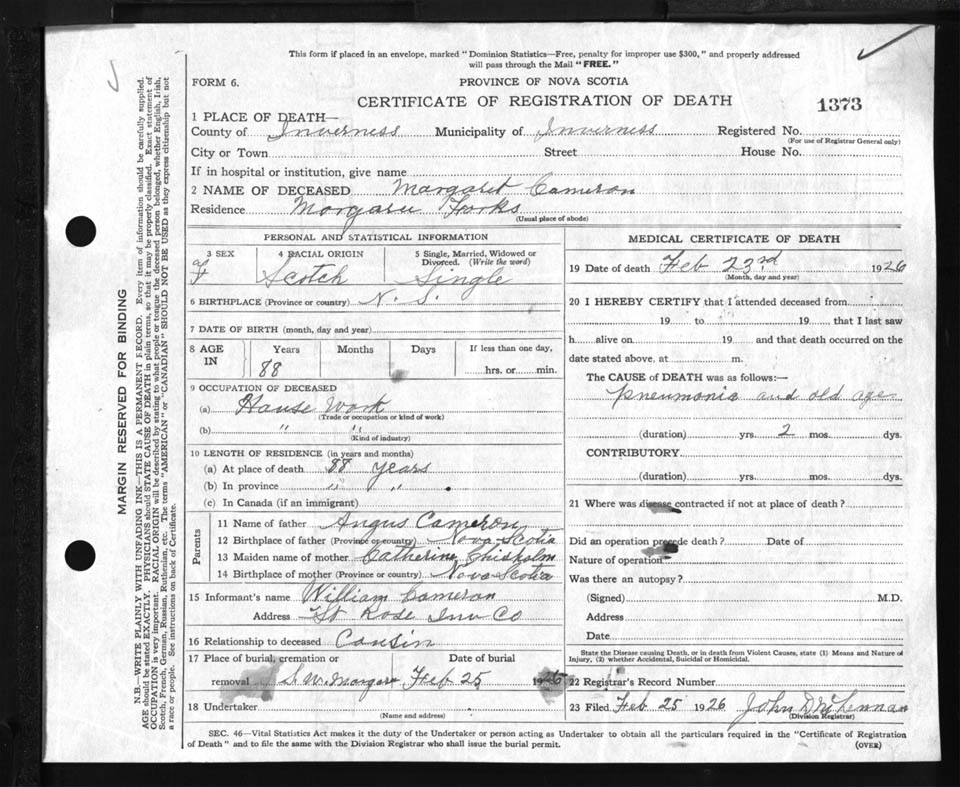 This form if placed in an envelope, marked "Dominion Statistics—Free, penalty for improper use $300," and properly addressed
will pass through the Mail "FREE."
FORM 6.
PROVINCE OF NOVA SCOTIA
CERTIFICATE OF REGISTRATION OF DEATH
1373
1 PLACE OF DEATH—
County of Inverness Municipality of Inverness Registered No.
(For use of Registrar General only)
City or Town Street House No.
If in hospital or institution, give name
2 NAME OF DECEASED Margaret Cameron
Residence Margaree Forks
(Usual place of abode)
PERSONAL AND STATISTICAL INFORMATION
3 SEX 4 RACIAL ORIGIN 5 Single, Married, Widowed or
Divorced. (Write the word)
F Scotch Single
6 BIRTHPLACE (Province or country) N. S.
7 DATE OF BIRTH (month, day and year)
8 AGE Years Months Days If less than one day,
IN 88 hrs. or min.
9 OCCUPATION OF DECEASED
(a) House Work
(Trade or occupation or kind of work)
(b) " "
(Kind of industry)
10 LENGTH OF RESIDENCE (in years and months)
(a) At place of death 88 years
(b) In province " "
(c) In Canada (if an immigrant)
Parents
11 Name of father Angus Cameron
12 Birthplace of father (Province or country) Nova Scotia
13 Maiden name of mother Catherine Chisholm
14 Birthplace of mother (Province or country) Nova Scotia
15 Informant's name William Cameron
Address St Rose Inv Co
16 Relationship to deceased Cousin
17 Place of burial, cremation or Date of burial
removal S. W. Margaree Feb 25 1926
18 Undertaker
(Name and address)
MEDICAL CERTIFICATE OF DEATH
19 Date of death Feb 23rd 1926
(Month, day and year)
20 I HEREBY CERTIFY that I attended deceased from
19 to 19 that I last saw
h alive on 19 and that death occurred on the
date stated above, at m.
The CAUSE of DEATH was as follows:—
pneumonia and old age
(duration) yrs. 2 mos. dys.
CONTRIBUTORY
(duration) yrs. mos. dys.
21 Where was disease contracted if not at place of death?
Did an operation precede death? Date of
Nature of operation
Was there an autopsy?
(Signed) M.D.
Address
Date
State the Disease causing Death, or in death from Violent Causes, state (1) Means and Nature of
Injury, (2) whether Accidental, Suicidal or Homicidal.
22 Registrar's Record Number
23 Filed Feb 25 1926 John D McLennan
(Division Registrar)
SEC. 46—Vital Statistics Act makes it the duty of the Undertaker or person acting as Undertaker to obtain all the particulars required in the "Certificate of Registration
of Death" and to file the same with the Division Registrar who shall issue the burial permit.
(OVER)
MARGIN RESERVED FOR BINDING
N.B.—WRITE PLAINLY WITH UNFADING INK—THIS IS A PERMANENT RECORD. Every item of information should be carefully supplied.
AGE should be stated EXACTLY. PHYSICIANS should STATE CAUSE OF DEATH in plain terms, so that it may be properly classified. Exact statement of
OCCUPATION is very important. RACIAL ORIGIN will be described by stating to what people or tongue the deceased person belonged, whether English, Irish,
Scotch, French, German, Russian, Ruthenian, etc. The terms "AMERICAN" or "CANADIAN" SHOULD NOT BE USED as they express citizenship but not
a race or people. See instructions on back of Certificate.